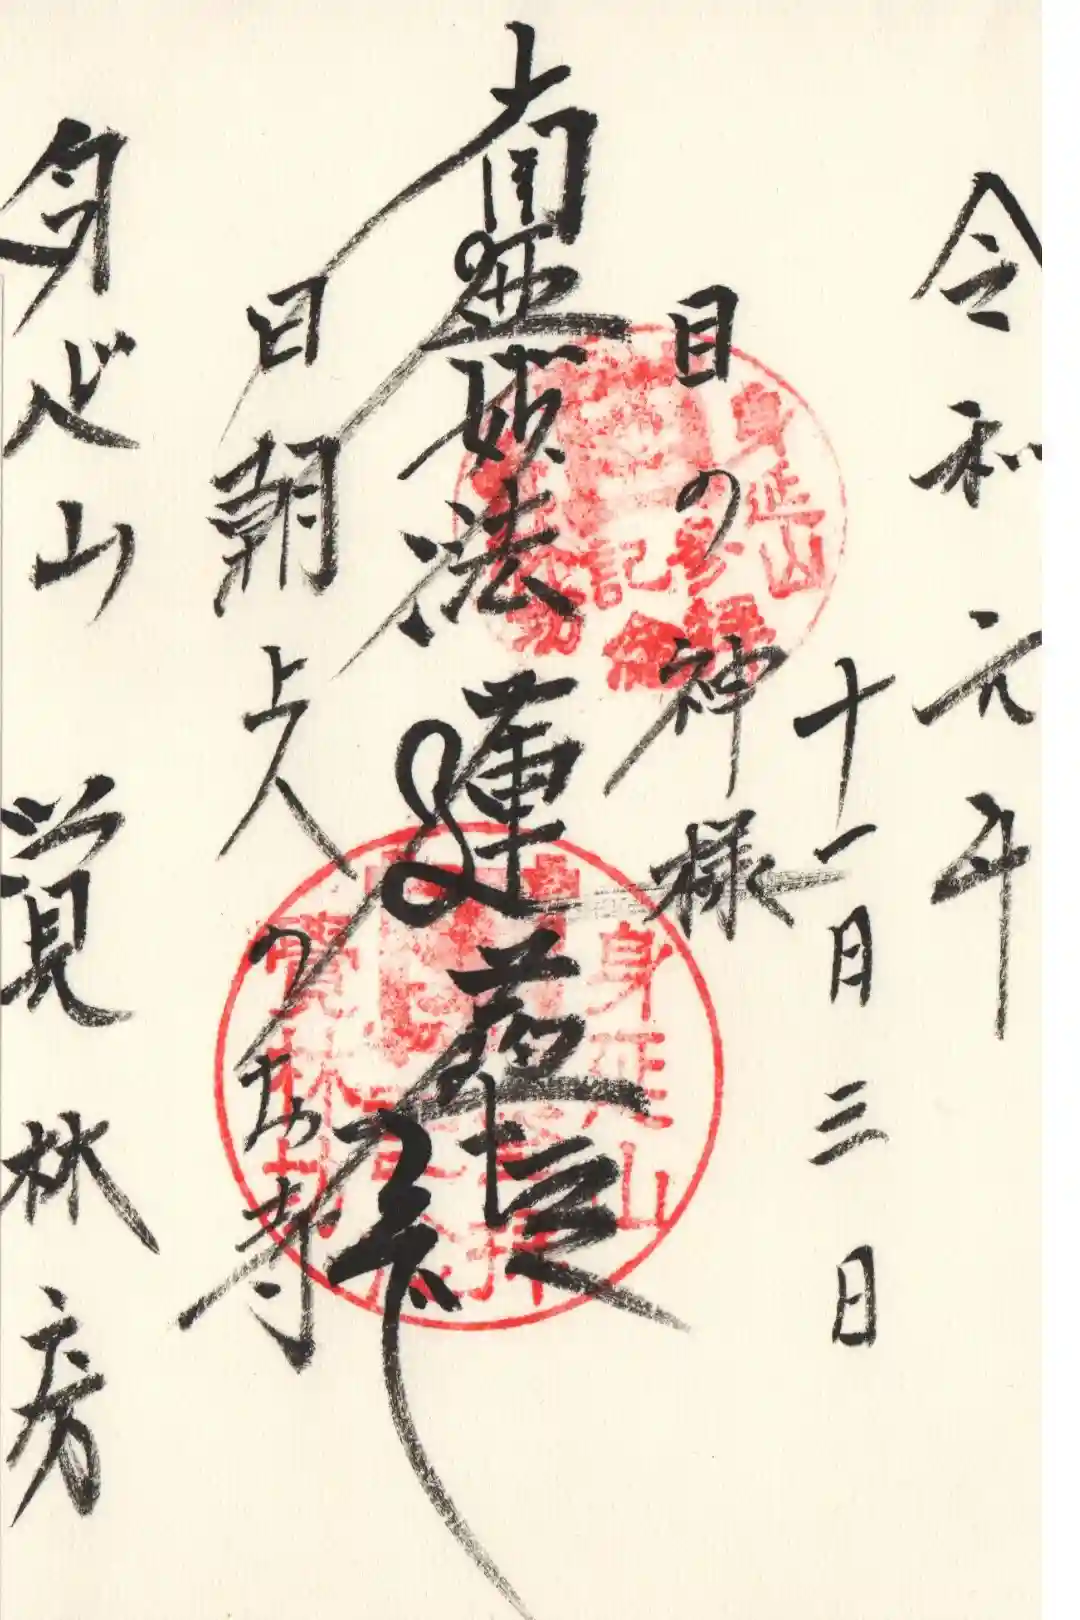 令和元年
十一月三日
目の神様
南無妙法蓮華経
日朝上人のお寺
身延山 覚林房
身延山
参拝
記念
身延山
覺林房